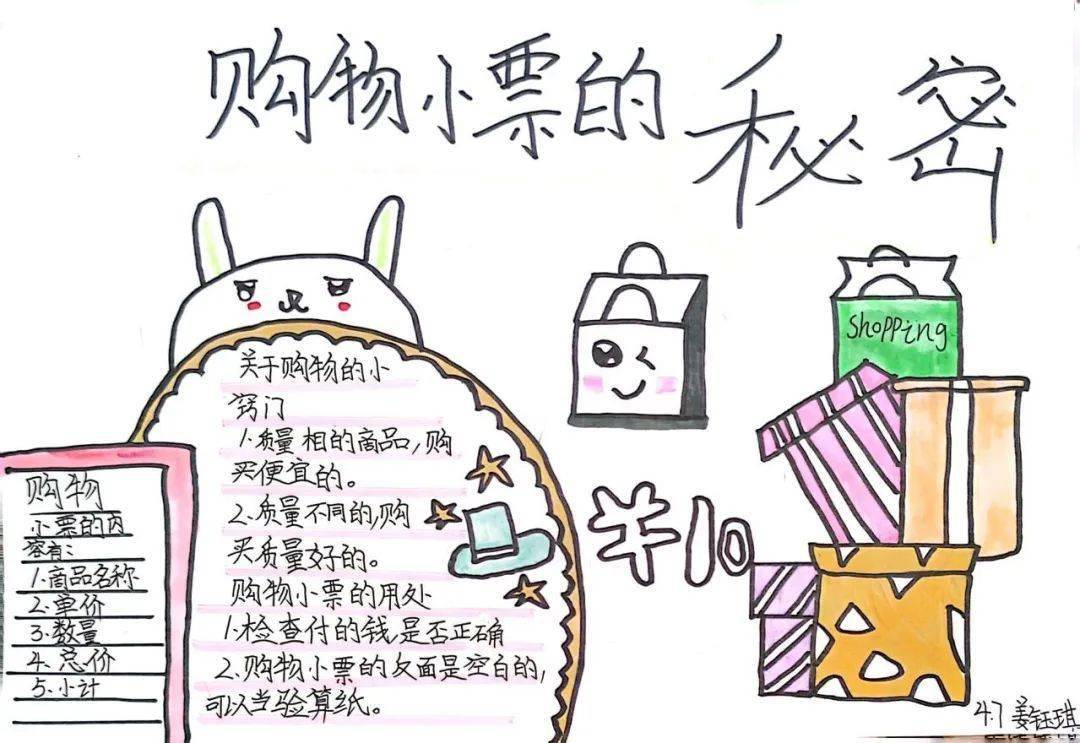 购物小票的秘密
关于购物的小
窍门
1.质量相的商品,购
买便宜的。
2.质量不同的,购
买质量好的。
购物小票的用处
1.检查付的钱是否正确
2.购物小票的反面是空白的,
可以当验算纸。
购物
小票的内
容有:
1.商品名称
2.单价
3.数量
4.总价
5.小计
Shopping
¥10
4.7 姜钰琪